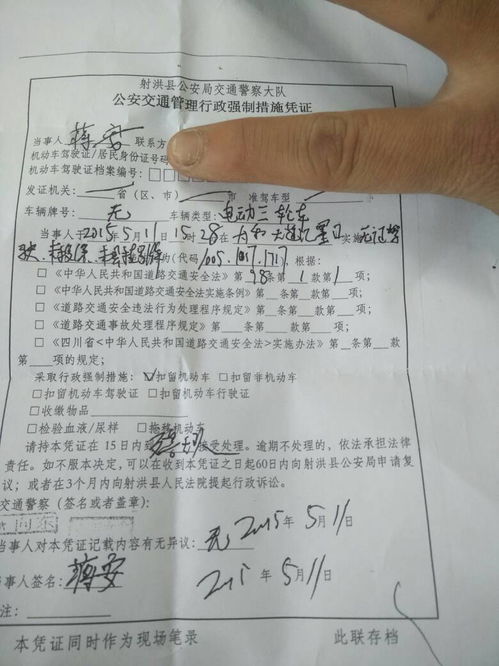 射洪县公安局交通警察大队
公安交通管理行政强制措施凭证
当事人 蒋安 联系方
机动车驾驶证/居民身份证号码
机动车驾驶证档案编号:□□□
发证机关: 省(区、市) 市 准驾车型
车辆牌号: 无 车辆类型: 电动三轮车
当事人于2015年5月11日15时28在 实施无证驾
驶、 的(代码1005.1017.1711),根据:
□《中华人民共和国道路交通安全法》第98条第1款第1项;
□《中华人民共和国道路交通安全法实施条例》第 条第 款第 项;
□《道路交通安全违法行为处理程序规定》第 条第 款第 项;
□《道路交通事故处理程序规定》第 条第 款第 项;
□《四川省<中华人民共和国道路交通安全法>实施办法》第 条第 款
第 项的规定;
采取行政强制措施: ☑扣留机动车 □扣留非机动车
□扣留机动车驾驶证 □扣留机动车行驶证
□收缴物品
□检验血液/尿样 □拖移机动车
请持本凭证在15日内到 接受处理。逾期不处理的,依法承担法律
责任。如不服本决定,可以在收到本凭证之日起60日内向射洪县公安局申请复
议;或者在3个月内向射洪县人民法院提起行政诉讼。
交通警察(签名或者盖章):
2015年5月11日
当事人对本凭证记载内容有无异议: 无
当事人签名: 蒋安 2015年5月11日
注:
本凭证同时作为现场笔录 此联存档